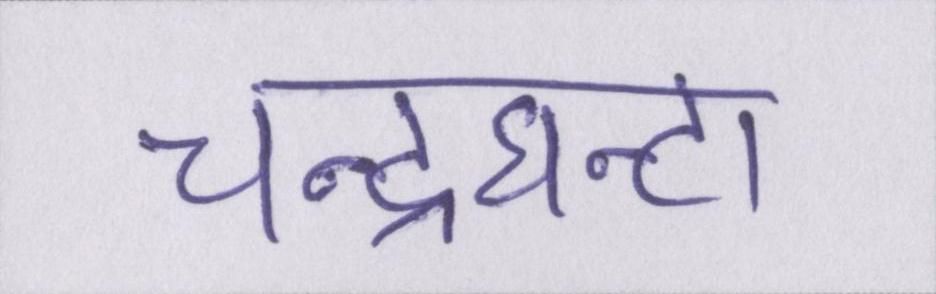 चन्द्रघन्टा